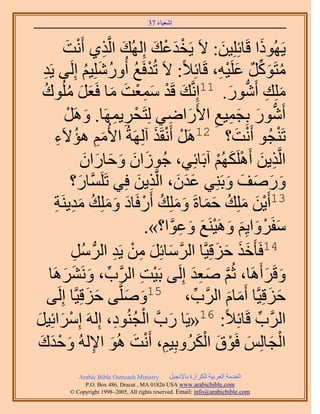 إشعياء 37
يَهُوذَا قَائِلِينَ: لاَ يَخْدَعْكَ إِلهُكَ الَّذِي أَنْتَ
مُتَوَكِّلٌ عَلَيْهِ، قَائِلاً: لاَ تُدْفَعُ أُورُشَلِيمُ إِلَى يَدِ
مَلِكِ أَشُّورَ. 11إِنَّكَ قَدْ سَمِعْتَ مَا فَعَلَ مُلُوكُ
أَشُّورَ بِجَمِيعِ الأَرَاضِي لِتَحْرِيمِهَا. وَهَلْ
تَنْجُو أَنْتَ؟ 12هَلْ أَنْقَذَ آلِهَةُ الأُمَمِ هؤُلاَءِ
الَّذِينَ أَهْلَكَهُمْ آبَائِي، جُوزَانَ وَحَارَانَ
وَرَصَفَ وَبَنِي عَدَنَ، الَّذِينَ فِي تَلَسَّارَ؟
13أَيْنَ مَلِكُ حَمَاةَ وَمَلِكُ أَرْفَادَ وَمَلِكُ مَدِينَةِ
سَفَرْوَايِمَ وَهَيْنَعَ وَعِوَّا؟».
14فَأَخَذَ حَزَقِيَّا الرَّسَائِلَ مِنْ يَدِ الرُّسُلِ
وَقَرَأَهَا، ثُمَّ صَعِدَ إِلَى بَيْتِ الرَّبِّ، وَنَشَرَهَا
حَزَقِيَّا أَمَامَ الرَّبِّ، 15وَصَلَّى حَزَقِيَّا إِلَى
الرَّبِّ قَائِلاً: 16«يَا رَبَّ الْجُنُودِ، إِلهَ إِسْرَائِيلَ
الْجَالِسَ فَوْقَ الْكَرُوبِيمِ، أَنْتَ هُوَ الإِلهُ وَحْدَكَ
Arabic Bible Outreach Ministry الخدمة العربية للكرازة بالإنجيل
P.O. Box 486, Dracut , MA 01826 USA www.arabicbible.com
© Copyright 1998–2005, All rights reserved. Email: info@arabicbible.com